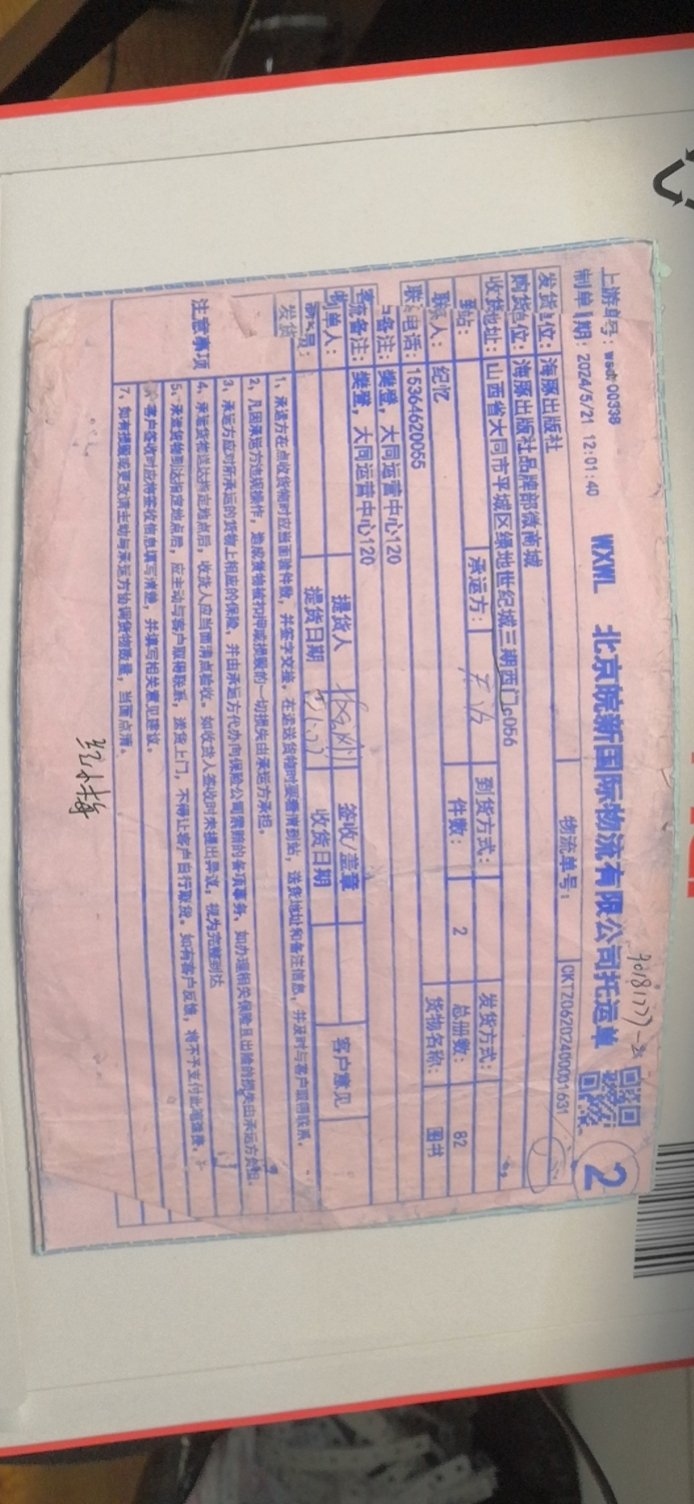 70181777-2
上游单号：wsdt00338
WXWL 北京皖新国际物流有限公司托运单
2
制单日期：2024/5/21 12:01:40
物流单号：
CKTZ06202400001631
发货单位：海豚出版社
购货单位：海豚出版社品牌部微商城
收货地址：山西省大同市平城区绿地世纪城三期西门c056
到站：
承运方：
到货方式：
发货方式：
联系人：纪忆
件数：
2
总册数：
82
联系电话：15364620055
货物名称：
图书
备注：樊登，大同运营中心120
客流备注：樊登，大同运营中心120
制单人：
提货人
签收/盖章
客户意见
提货日期
收货日期
发货
注意事项
1、承运方在点收货物时应当面验件数，并签字交接。在运送货物时要看清到站，送货地址和备注信息，并及时与客户取得联系。
2、凡因承运方违规操作，造成货物被扣押或损毁的一切损失由承运方承担。
3、承运方应对所承运的货物上相应的保险，并由承运方代办向保险公司索赔的各项事务，如办理相关保险且出险的损失由承运方负担。
4、承运货物送达指定地点后，收货人应当面清点验收。如收货人签收时未提出异议，视为完整到达
5、承运货物到达指定地点后，应主动与客户取得联系，送货上门，不得让客户自行取货。如有客户反馈，将不予支付此项运费。
客户签收时应将签收信息填写清楚，并填写相关意见建议。
7、如有损毁或更改请主动与承运方协调货物数量，当面点清。